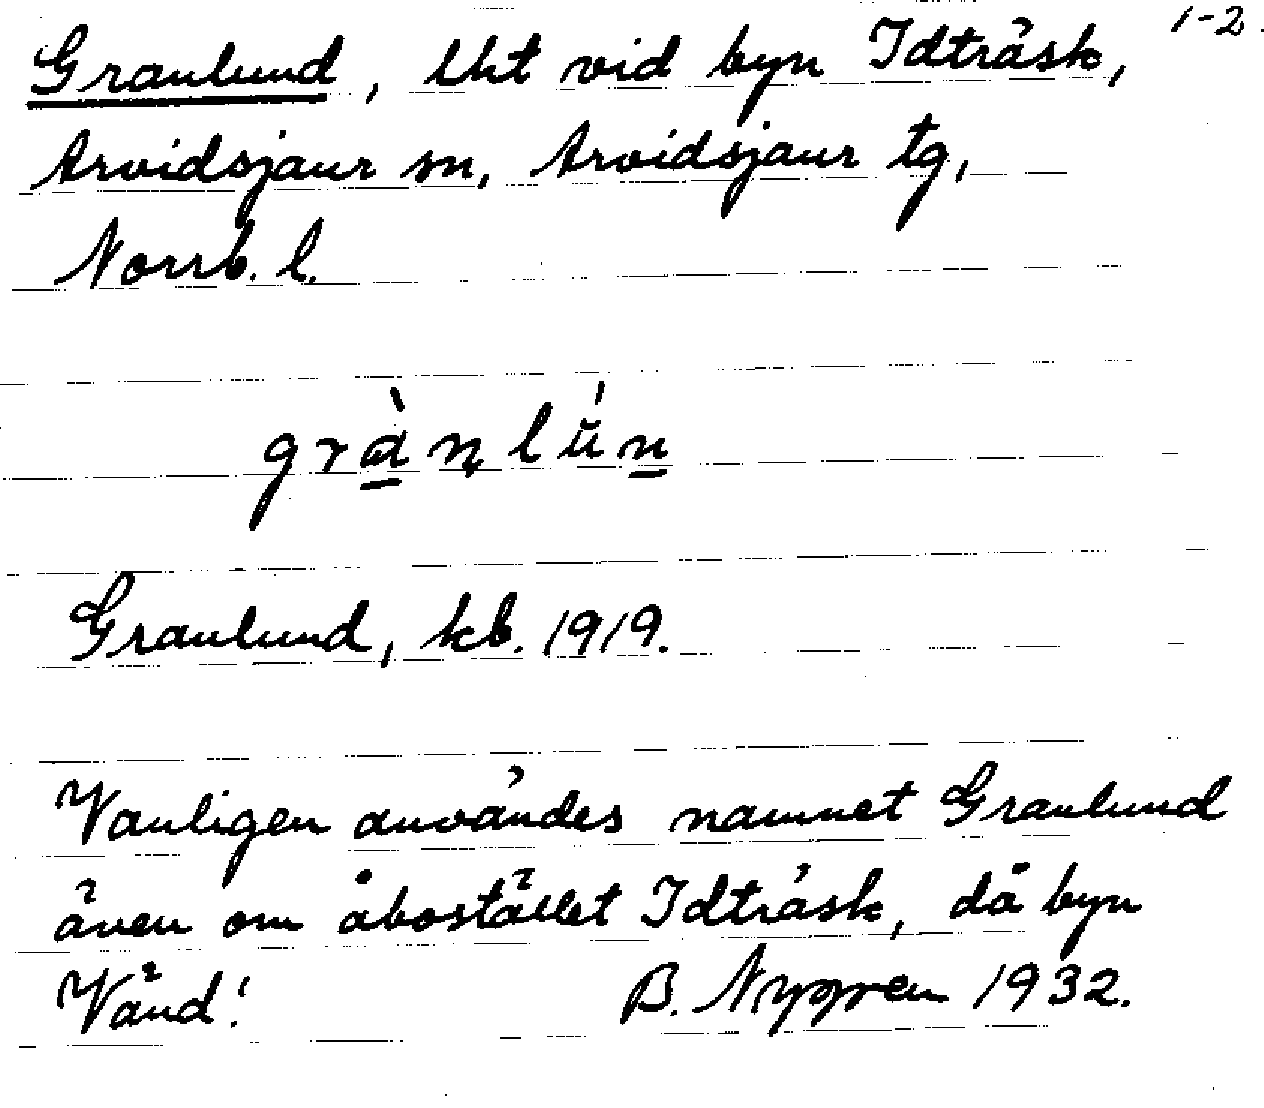 1-2.
Granlund, lht vid byn Idträsk,
Arvidsjaur sn, Arvidsjaur tg,
Norrb. l.
grànlún
Granlund, kb. 1919.
Vanligen användes namnet Granlund
även om åbostället Idträsk, då byn
Vänd! B. Nygren 1932.